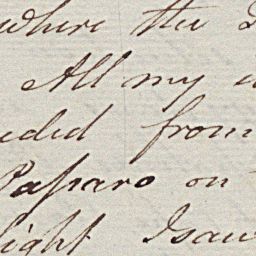 where the
All my
eded from
Paſsaro on
light I saw